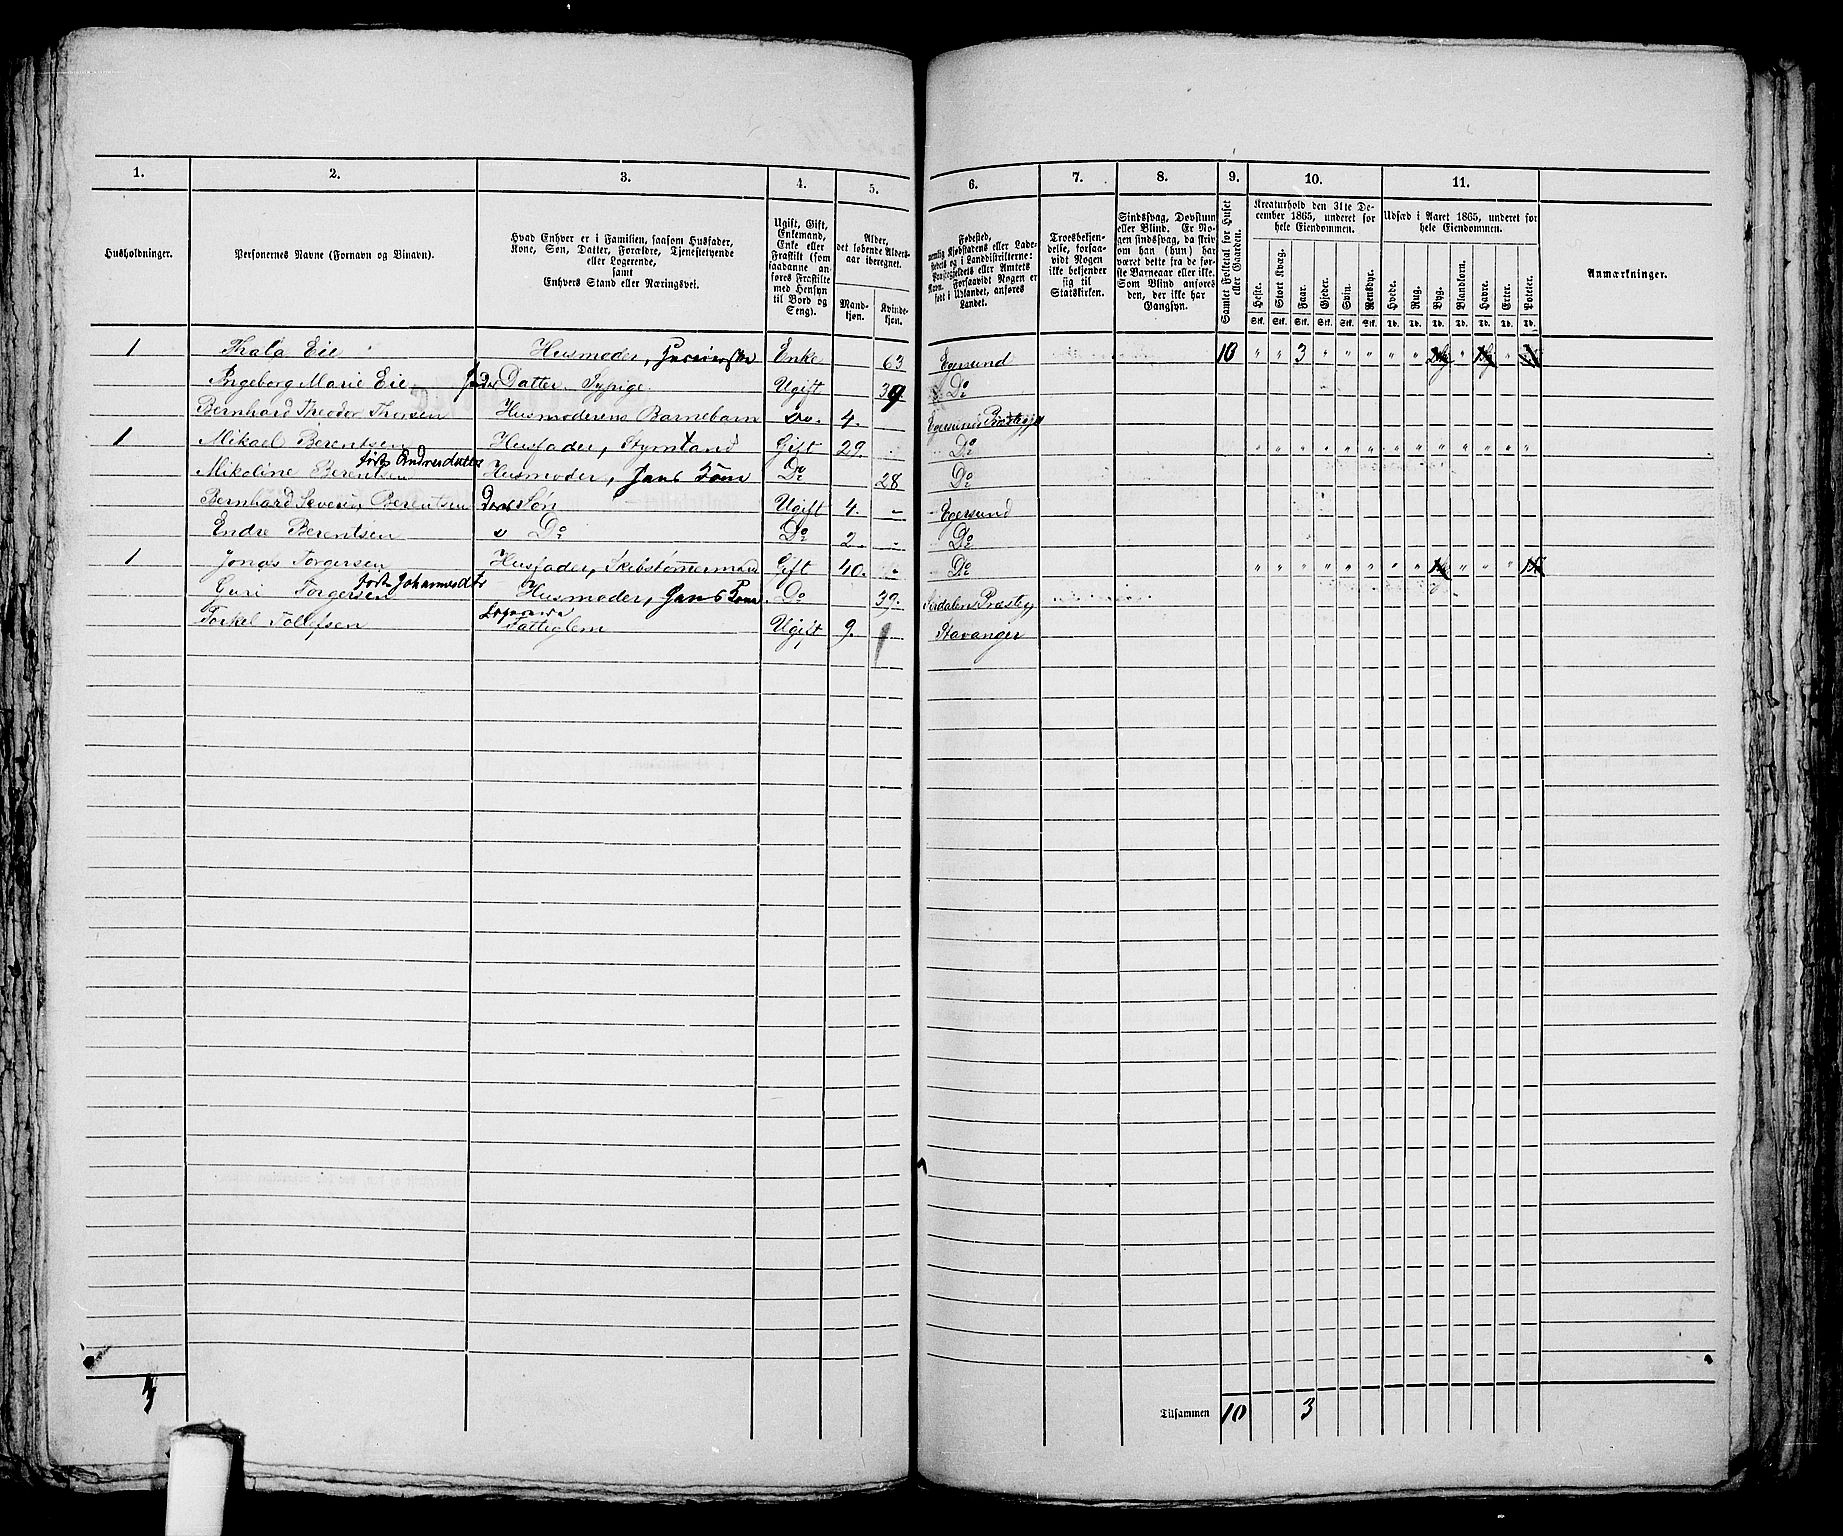 1. 2. 3. 4. 5. 6. 7. 8. 9. 10. 11.
Husholdninger.
Personernes Navne (Fornavn og Binavn).
Hvad Enhver er i Familien, saasom Husfader,
Kone, Søn, Datter, Forældre, Tjenestetyende
eller Logerende,
samt
Enhvers Stand eller Næringsvei.
Ugift, Gift,
Enkemand,
Enke eller
Fraskilt (som
saadanne an-
føres Fraskilte
med Hensyn
til Bord og
Seng).
Alder,
det løbende Alders-
aar iberegnet.
Mand-
kjøn.
Kvinde-
kjøn.
Fødested,
nemlig Kjøbstadens eller Lade-
stedets og i Landdistrikterne:
Præstegjeldets eller Amtets
Navn. Forsaavidt Nogen er
født i Udlandet, anføres
Landet.
Troesbekjen-
delse, forsaa-
vidt Nogen
ikke bekjender
sig til
Statskirken.
Sindssvag, Døvstum
eller Blind. Er No-
gen sindssvag, da skriv
om han (hun) har
været dette fra de før-
ste Barneaar eller ikke.
Som Blind anføres
den, der ikke har
Gangsyn.
Samlet Folketal for Huset
eller Gaarden.
Kreaturhold den 31te De-
cember 1865, underet for
hele Eiendommen.
Heste. Stort Kvæg. Faar. Gjeder. Svin. Rensdyr.
Stk. Stk. Stk. Stk. Stk. Stk.
Udsæd i Aaret 1865, underet for
hele Eiendommen.
Hvede. Rug. Byg. Blandkorn. Havre. Erter. Poteter.
Td. Td. Td. Td. Td. Td. Td.
Anmærkninger.
1 Thala Eie Husmoder, Enke 63 Egersund 10 " " 3 " " " " " " "
Ingeborg Marie Eie Datter Sypige. Ugift 39 Do
Bernhard Theodor Thersen Husmoderens Barnebarn Do. 4. Egersunds Præstegj
1 Mikael Berentsen Husfader, Styrmand Gift 29. Do " " " " " " " " " " " " "
født Endresdatter
Mikoline Berentsen Husmoder, Hans Kone Do 28 Do
Bernhard Severin Berentsen Deres Søn Ugift 4. Egersund
Endre Berentsen " Do Do 2. Do
1 Jonas Torgersen Husfader, Skibstømmermand Gift 40. Do " " " " " " " " " " "
født Johannesdtr
Guri Torgersen Husmoder, Hans Kone Do 39. Sirdalen Præstegj
Logerende
Torkel Tollefsen Fattiglem Ugift 9. Stavanger
Tilsammen 10 3